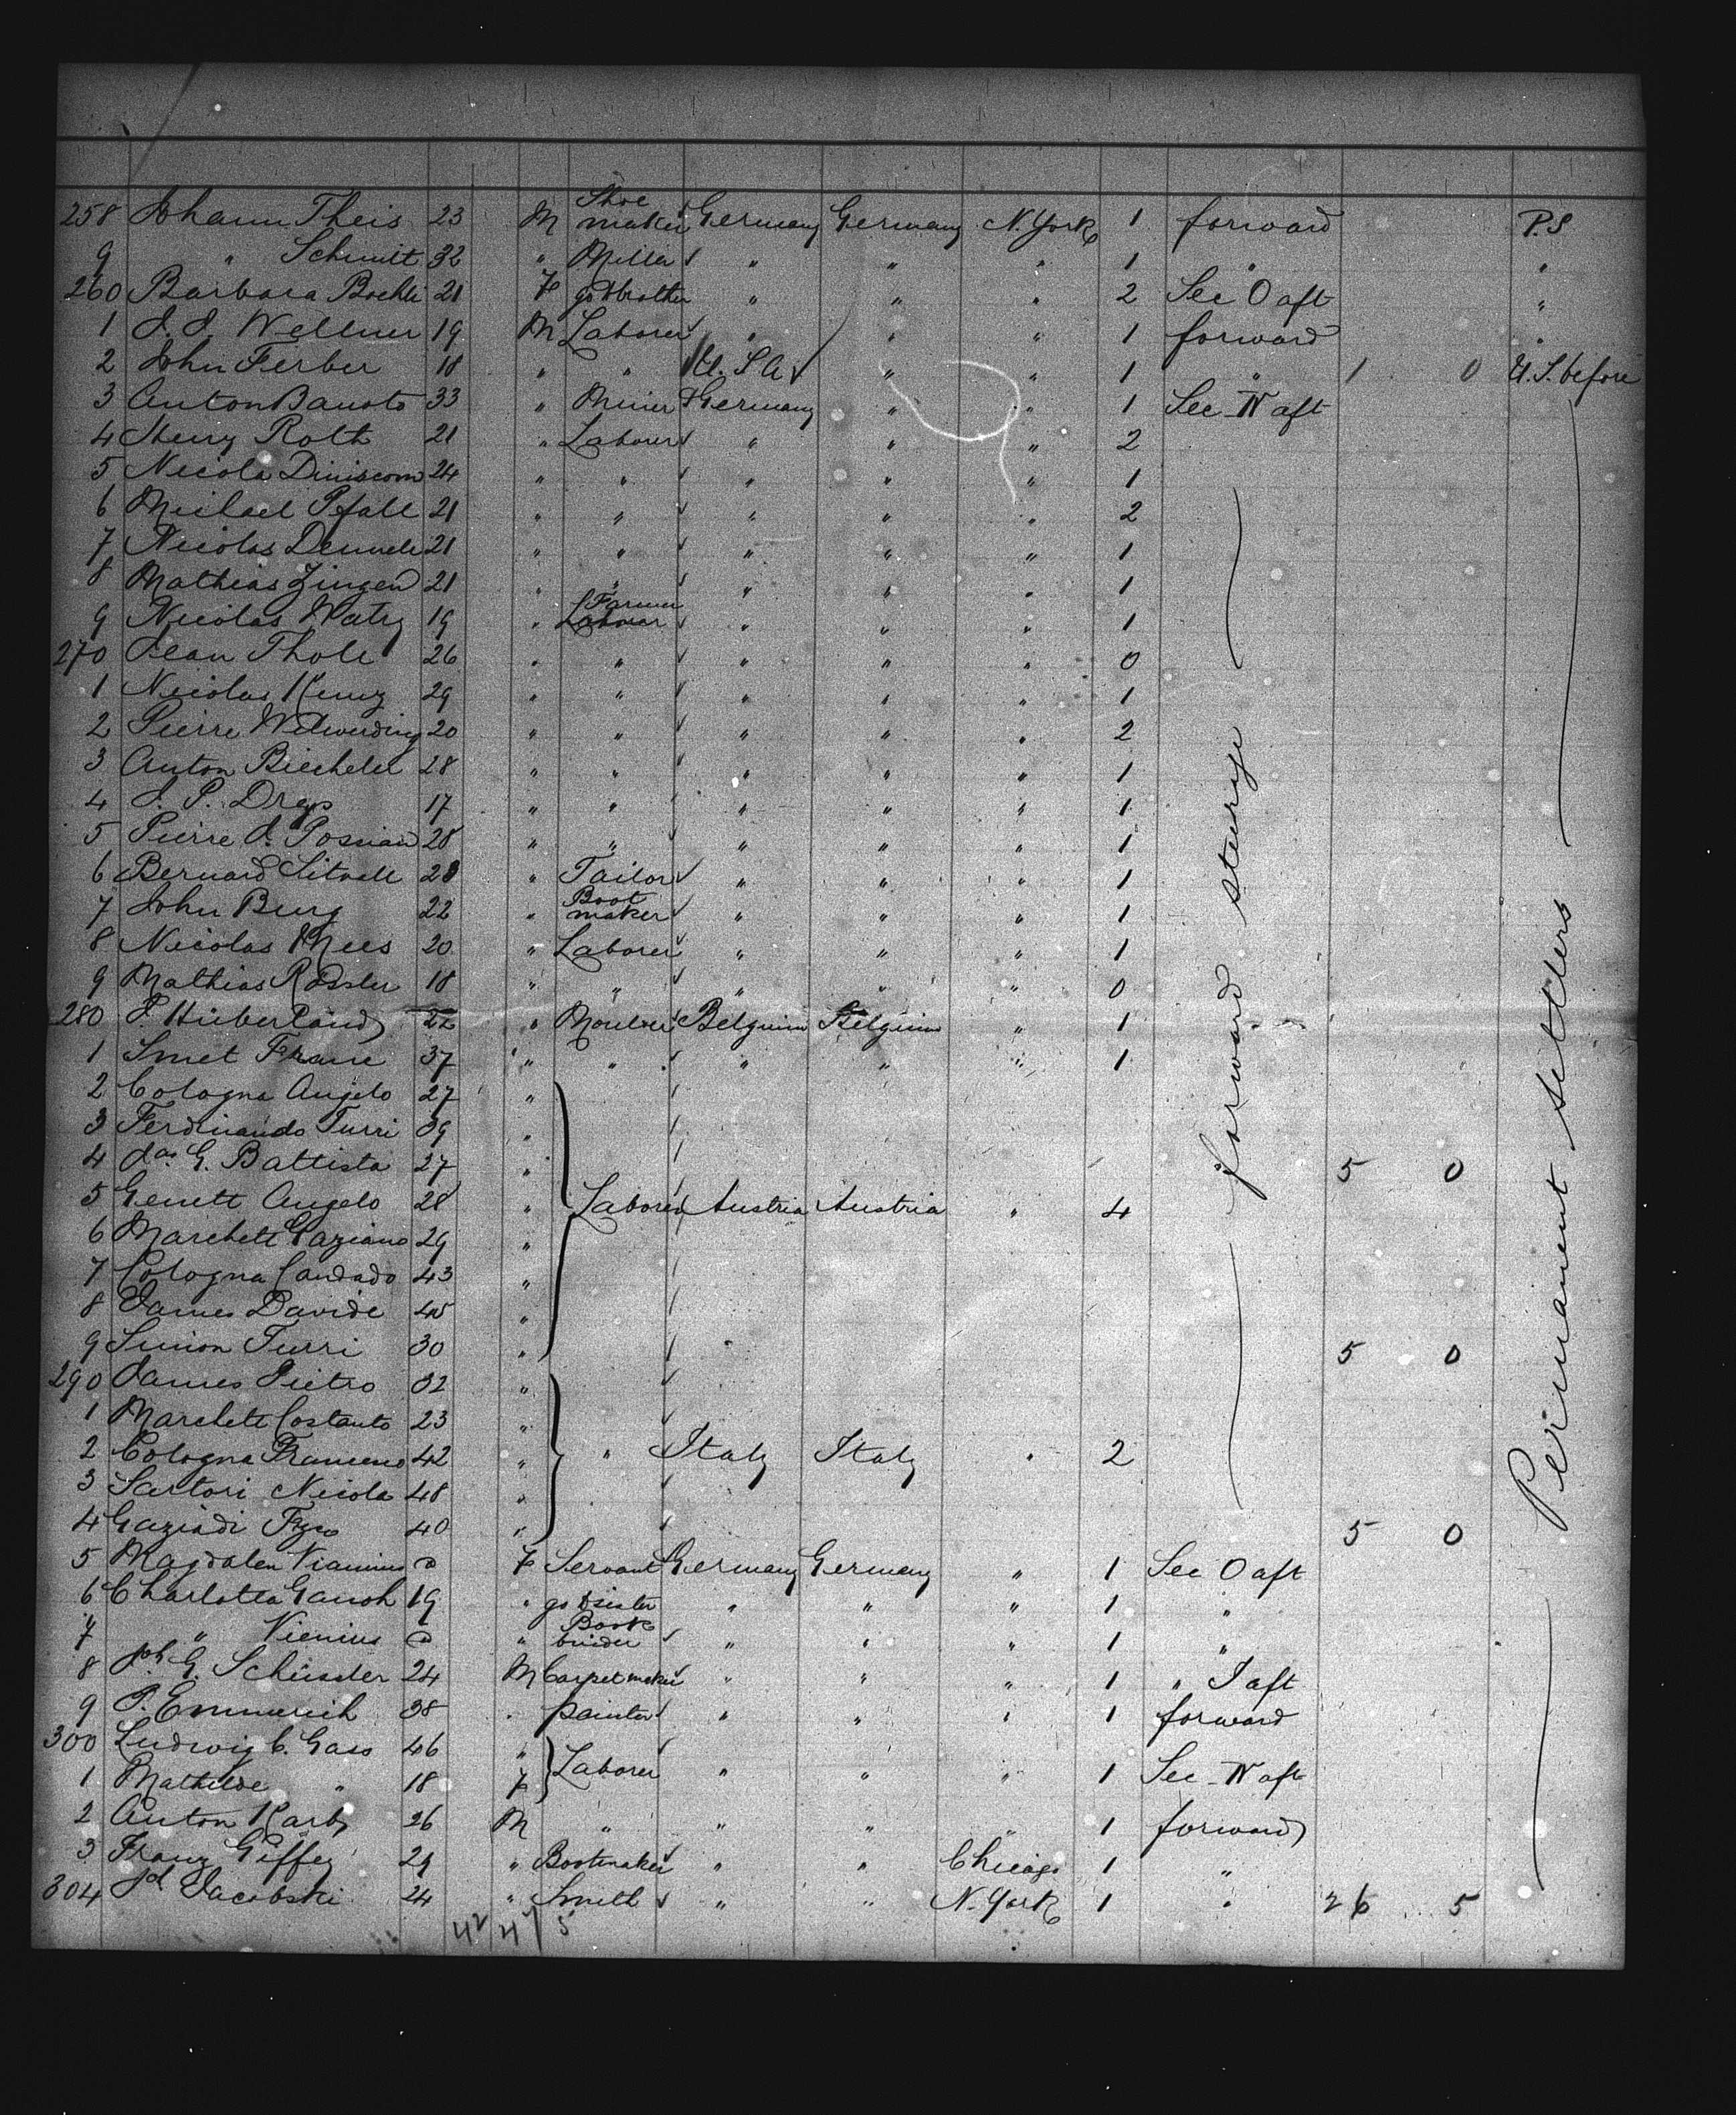 258 Johann Theis 23 M Shoe maker Germany Germany N. York 1 forward P.S
9 " Schmitt 32 " Miller " " " 1 " "
260 Barbara Bochli 21 F go t brother " " " 2 Sec O aft "
1 J. J. Wellner 19 M Laborer " " " 1 forward "
2 John Ferber 18 " " U. S. A " " 1 " 1 0 U.S. before
3 Anton 33 " Miner Germany " " 1 Sec IV aft
4 Henry Roth 21 " Laborer " " " 2
5 Nicola 24 " " " " " 1
6 Michael Pfall 21 " " " " " 2
7 Nicolas 21 " " " " " 1
8 Mathias Zingen 21 " " " " " 1
9 Nicolas Watry 19 " Farmer Laborer " " " 1
270 Jean Thole 26 " " " " " 0
1 Nicolas 29 " " " " " 1
2 Pierre Wilwerding 20 " " " " " 2
3 Anton Biechelel 28 " " " " " 1
4 J. P. Dreps 17 " " " " " 1
5 Pierre J. 28 " " " " " 1
6 Bernard 28 " Tailor " " " 1
7 John Burg 22 " Boot maker " " " 1
8 Nicolas Mees 20 " Laborer " " " 1
9 Mathias Rossler 18 " " " " " 0
forward steerage
Permanent settlers
280 P. Huberland 22 " Moulder Belgium Belgium " 1
1 Smet Frane 37 " " " " " 1
2 Cologna Angelo 27 "
3 Ferdinando Turri 39 "
4 G. Battista 27 " 5 0
5 Genett Angelo 28 " Laborer Austria Austria " 4
6 Marchett Gaziano 29 "
7 Cologna Candado 43 "
8 James Davide 45 "
9 Simon Turri 30 " 5 0
290 James Pietro 32 "
1 Marchett Costanto 23 "
2 Cologna 42 " " Italy Italy " 2
3 Sartori Nicola 48 "
4 Gaziadi 40 " 5 0
5 Magdalen F Servant Germany Germany " 1 Sec O aft
6 Charlotta 19 " go t sister " " " 1 "
7 " Vienius " Book binder " " " 1 "
8 Jph G. Schüssler 24 M Carpet maker " " " 1 " I aft
9 P. Emmerich 38 " painter " " " 1 forward
300 Ludwig C. Gass 46 "
1 Mathilde " 18 F Laborer " " " 1 Sec IV aft
2 Anton Karb 26 M " " " " 1 forward
3 Franz Giffey 29 " Bootmaker " " Chicago 1 "
304 Jacobski 24 " Smith " " N. York 1 " 26 5
42 47 5